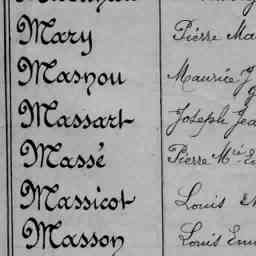 Mary Pierre Ma
Masnou Maurice J
Massart Joseph Jea
Massé Pierre Mie E
Massicot Louis
Masson Louis Em